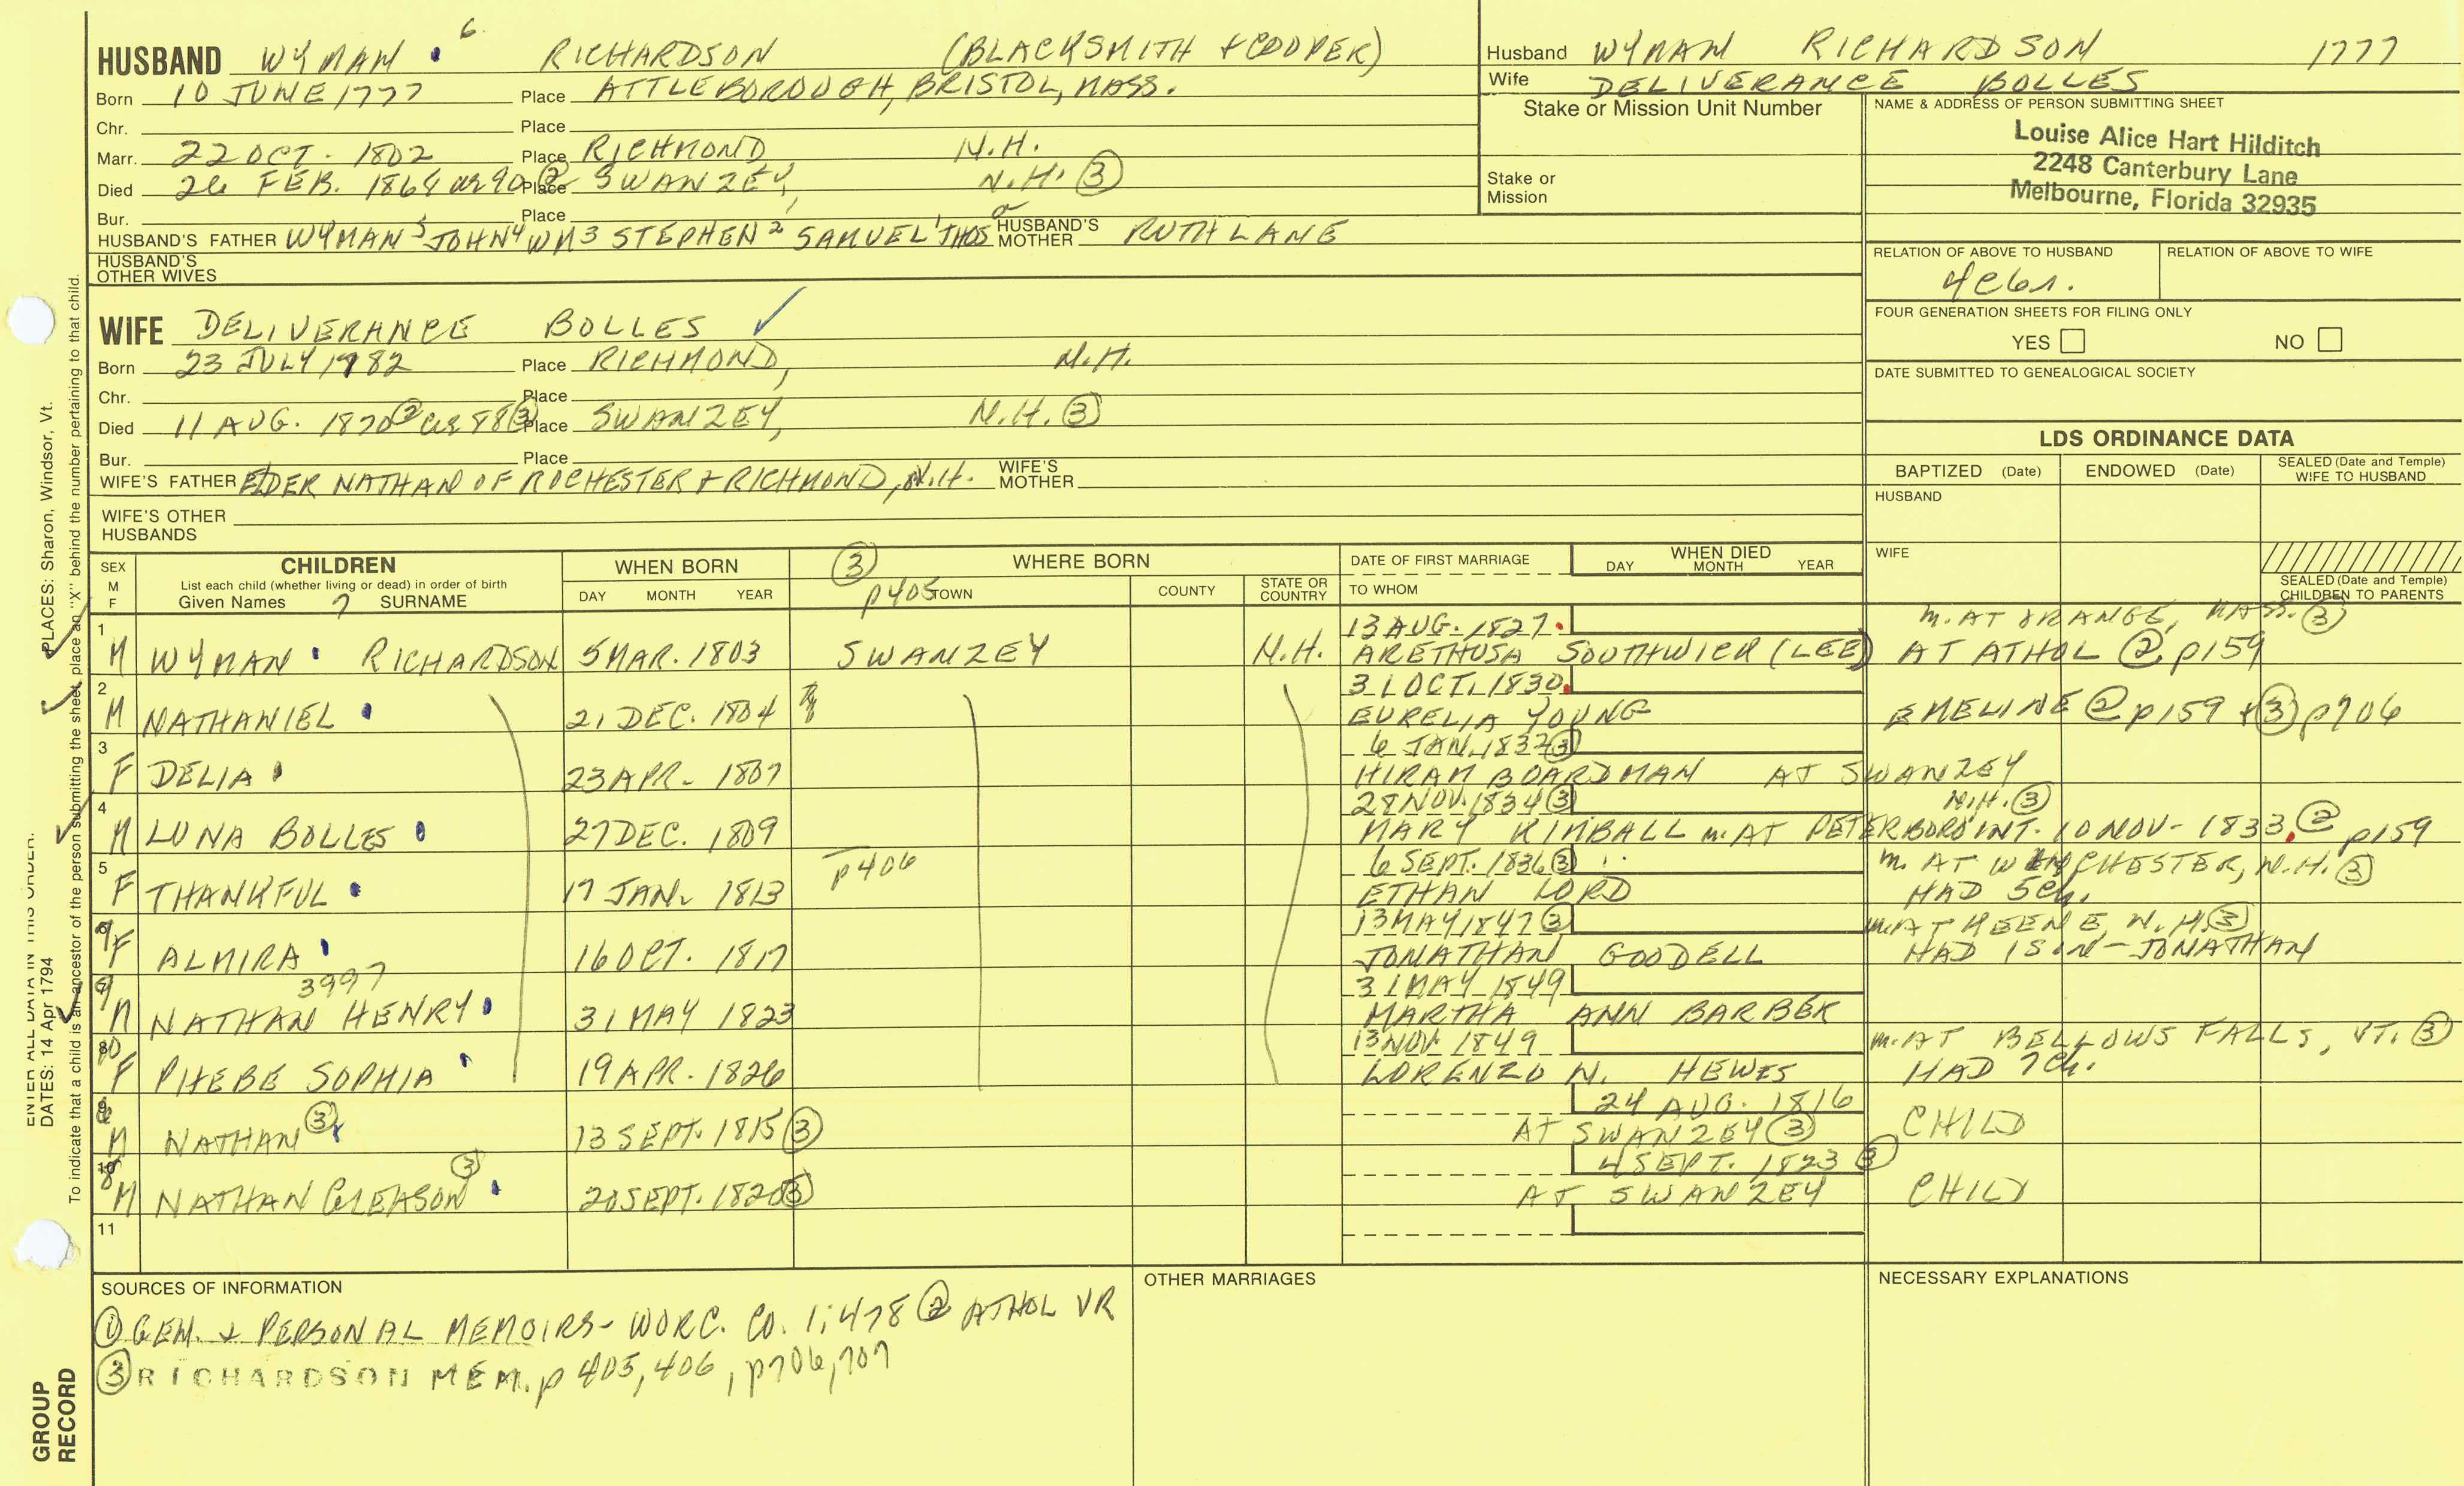 HUSBAND WYMAN 6 RICHARDSON (BLACKSMITH + COOPER)
Born 10 JUNE 1777 Place ATTLEBOROUGH, BRISTOL, MASS.
Chr. Place
Marr. 22 OCT. 1802 Place RICHMOND, N.H.
Died 26 FEB. 1868 ae 90 ② Place SWANZEY, N.H. ③
Bur. Place
HUSBAND'S FATHER WYMAN 5 JOHN 4 WM 3 STEPHEN 2 SAMUEL 1 THOS HUSBAND'S MOTHER RUTH LANE
HUSBAND'S OTHER WIVES
Husband WYMAN RICHARDSON 1777
Wife DELIVERANCE BOLLES
Stake or Mission Unit Number
Stake or Mission
NAME & ADDRESS OF PERSON SUBMITTING SHEET
Louise Alice Hart Hilditch
2248 Canterbury Lane
Melbourne, Florida 32935
RELATION OF ABOVE TO HUSBAND RELATION OF ABOVE TO WIFE
FOUR GENERATION SHEETS FOR FILING ONLY
YES NO
DATE SUBMITTED TO GENEALOGICAL SOCIETY
WIFE DELIVERANCE BOLLES ✓
Born 23 JULY 1782 Place RICHMOND, N.H.
Chr. Place
Died 11 AUG. 1870 ② ae 88 ③ Place SWANZEY, N.H. ③
Bur. Place
WIFE'S FATHER ELDER NATHAN OF ROCHESTER + RICHMOND, N.H. WIFE'S MOTHER
WIFE'S OTHER HUSBANDS
LDS ORDINANCE DATA
BAPTIZED (Date) ENDOWED (Date) SEALED (Date and Temple) WIFE TO HUSBAND
HUSBAND
WIFE
SEALED (Date and Temple) CHILDREN TO PARENTS
SEX M F CHILDREN WHEN BORN ③ WHERE BORN DATE OF FIRST MARRIAGE WHEN DIED
List each child (whether living or dead) in order of birth DAY MONTH YEAR
Given Names 7 SURNAME DAY MONTH YEAR p405 TOWN COUNTY STATE OR COUNTRY TO WHOM
1 13 AUG. 1827. m. AT ORANGE, MASS. ③
M WYMAN RICHARDSON 5 MAR. 1803 SWANZEY N.H. ARETHUSA SOUTHWICK (LEE) AT ATHOL ② p159
2 31 OCT. 1830.
M NATHANIEL 21 DEC. 1804 EURELIA YOUNG EMELINE ② p159 + ③ p706
3 6 JAN. 1832 ③
F DELIA 23 APR. 1807 HIRAM BOARDMAN AT SWANZEY
4 28 NOV. 1834 ③ N.H. ③
M LUNA BOLLES 27 DEC. 1809 MARY KIMBALL m. AT PETERBORO INT. 10 NOV. 1833. ② p159
5 p406 6 SEPT. 1836 ③ m. AT WINCHESTER, N.H. ③
F THANKFUL 17 JAN. 1813 ETHAN LORD HAD 5 ch.
13 MAY 1847 ③ m. AT KEENE, N.H. ③
F ALMIRA 16 OCT. 1817 JONATHAN GOODELL HAD 1 SON - JONATHAN
3997 31 MAY 1849
M NATHAN HENRY 31 MAY 1823 MARTHA ANN BARBER
13 NOV. 1849 m. AT BELLOWS FALLS, VT. ③
F PHEBE SOPHIA 19 APR. 1826 LORENZO N. HEWES HAD 7 ch.
24 AUG. 1816
M NATHAN ③ 13 SEPT. 1815 ③ AT SWANZEY ③ CHILD
4 SEPT. 1823 ③
M NATHAN GLEASON ③ 20 SEPT. 1820 ③ AT SWANZEY CHILD
11
SOURCES OF INFORMATION
① GEN. & PERSONAL MEMOIRS - WORC. CO. 1:478 ② ATHOL VR
③ RICHARDSON MEM. p 405, 406, p706, 707
OTHER MARRIAGES
NECESSARY EXPLANATIONS
ENTER ALL DATA IN THIS ORDER:
DATES: 14 Apr 1794 PLACES: Sharon, Windsor, Vt.
To indicate that a child is an ancestor of the person submitting the sheet, place an "X" behind the number pertaining to that child.
GROUP RECORD